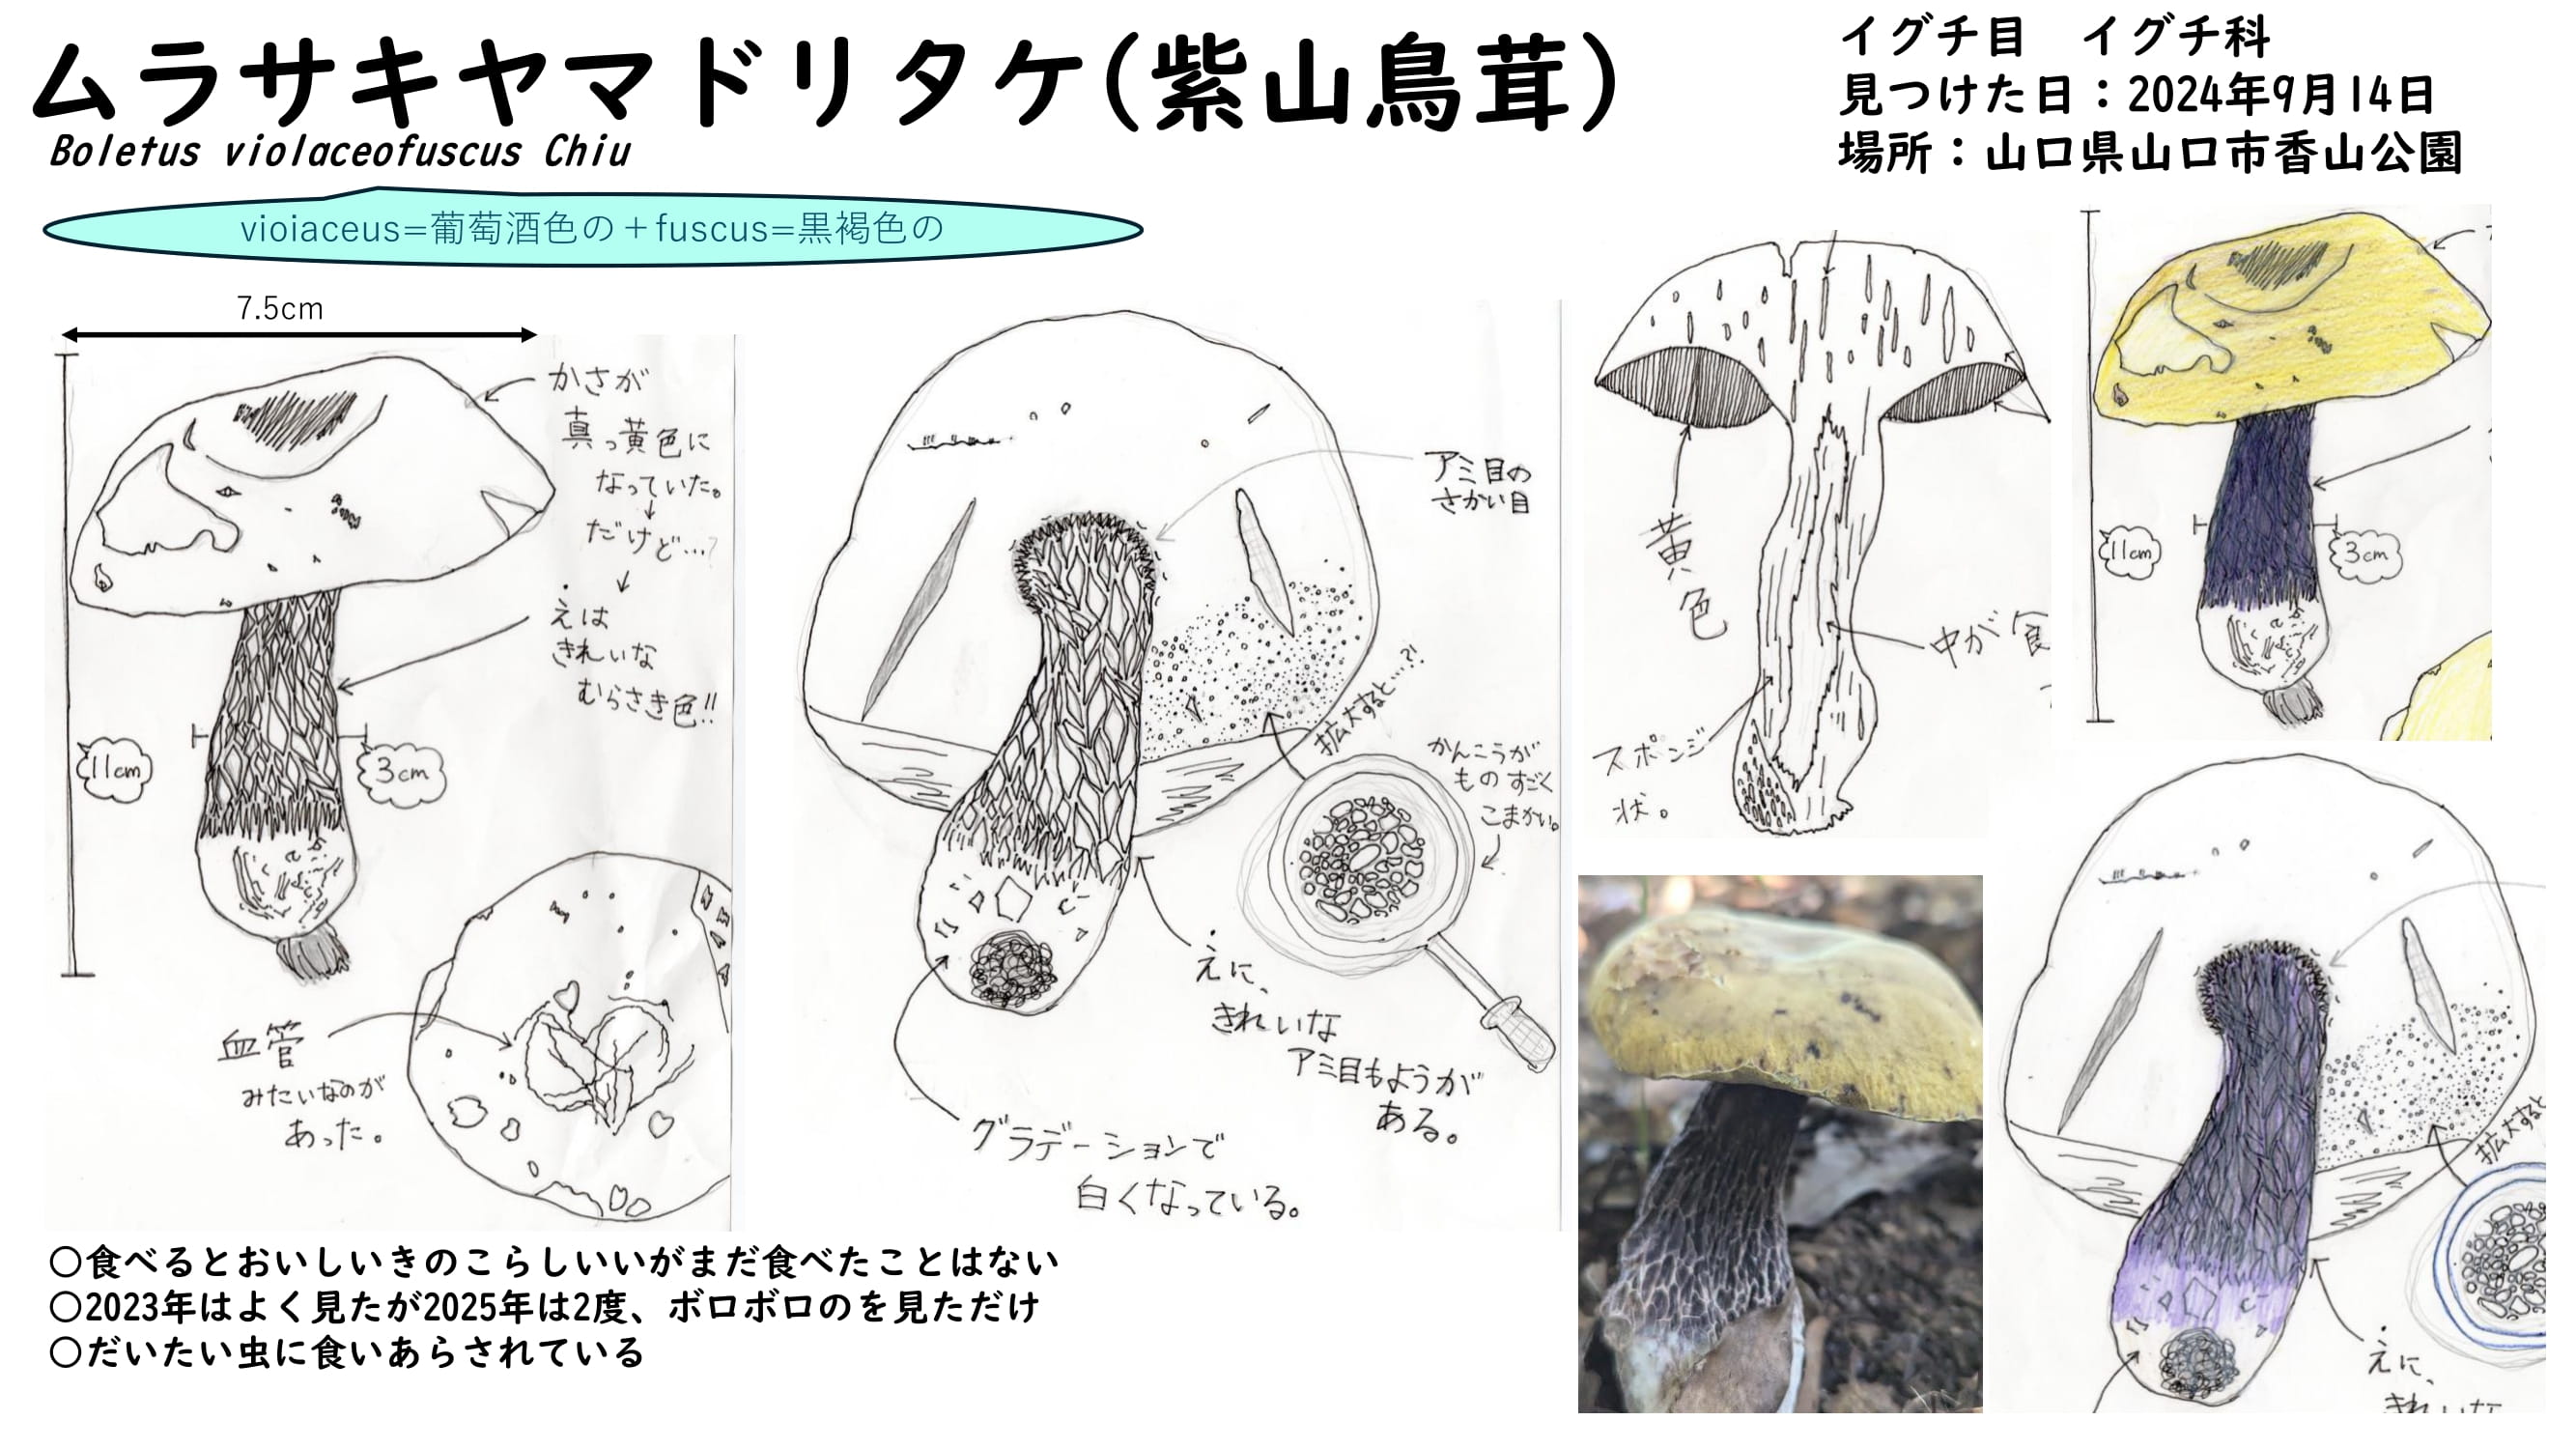 ムラサキヤマドリタケ(紫山鳥茸)
Boletus violaceofuscus Chiu
イグチ目　イグチ科
見つけた日：2024年9月14日
場所：山口県山口市香山公園
vioiaceus=葡萄酒色の＋fuscus=黒褐色の
7.5cm
かさが
真っ黄色に
なっていた。
↓
だけど…?
↓
えは
きれいな
むらさき色!!
11cm
3cm
血管
みたいなのが
あった。
アミ目の
さかい目
拡大すると…?!
かんこうが
ものすごく
こまかい。
えに、
きれいな
アミ目もようが
ある。
グラデーションで
白くなっている。
黄色
中が食
スポンジ
状。
11cm
3cm
拡大すると
えに、
きれいな
〇食べるとおいしいきのこらしいいがまだ食べたことはない
〇2023年はよく見たが2025年は2度、ボロボロのを見ただけ
〇だいたい虫に食いあらされている